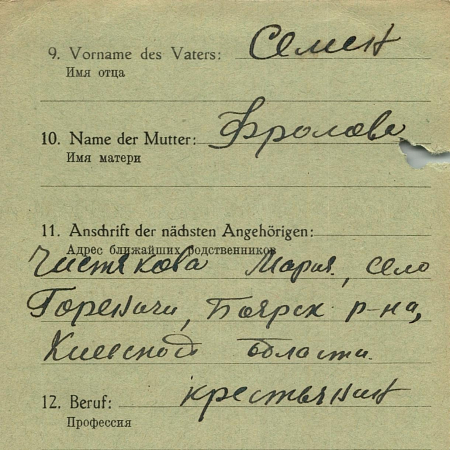 9. Vorname des Vaters: Семен
Имя отца
10. Name der Mutter: Фролова
Имя матери
11. Anschrift der nächsten Angehörigen:
Адрес ближайших родственников
Чистякова Мария, село
Гореничи, Боярск р-на,
Киевской области.
12. Beruf: крестьянин
Профессия